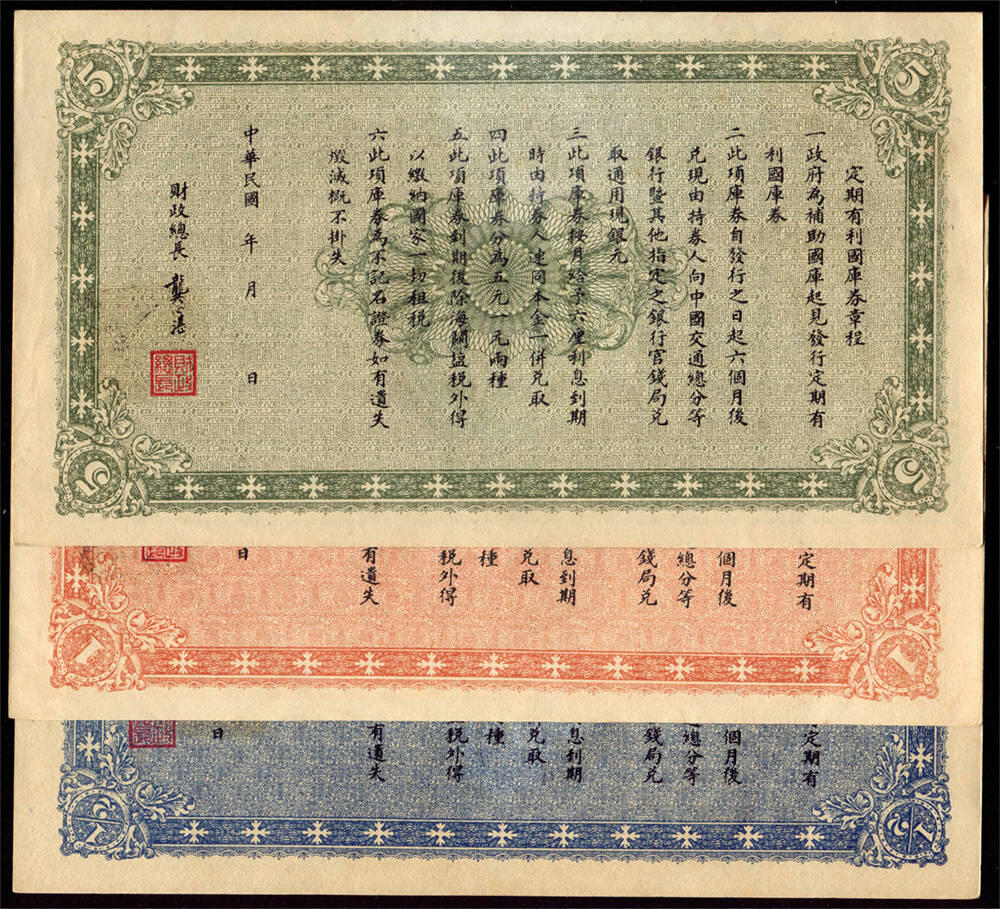 定期有利國庫券章程
一政府為補助國庫起見發行定期有
利國庫券
二此項庫券自發行之日起六個月後
兌現由持券人向中國交通總分等
銀行暨其他指定之銀行官錢局兌
取通用現銀元
三此項庫券按月給予六厘利息到期
時由持券人連同本金一併兌取
四此項庫券分為五元一元兩種
五此項庫券到期後除海關鹽稅外得
以繳納國家一切租稅
六此項庫券為不記名證券如有遺失
燬滅概不掛失
中華民國 年 月 日
財政總長 龔心湛
財政總長
5
5
5
5
定期有
個月後
總分等
錢局兌
息到期
兌取
種
稅外得
有遺失
日
1
1
定期有
個月後
總分等
錢局兌
息到期
兌取
種
稅外得
有遺失
日
1/2
1/2